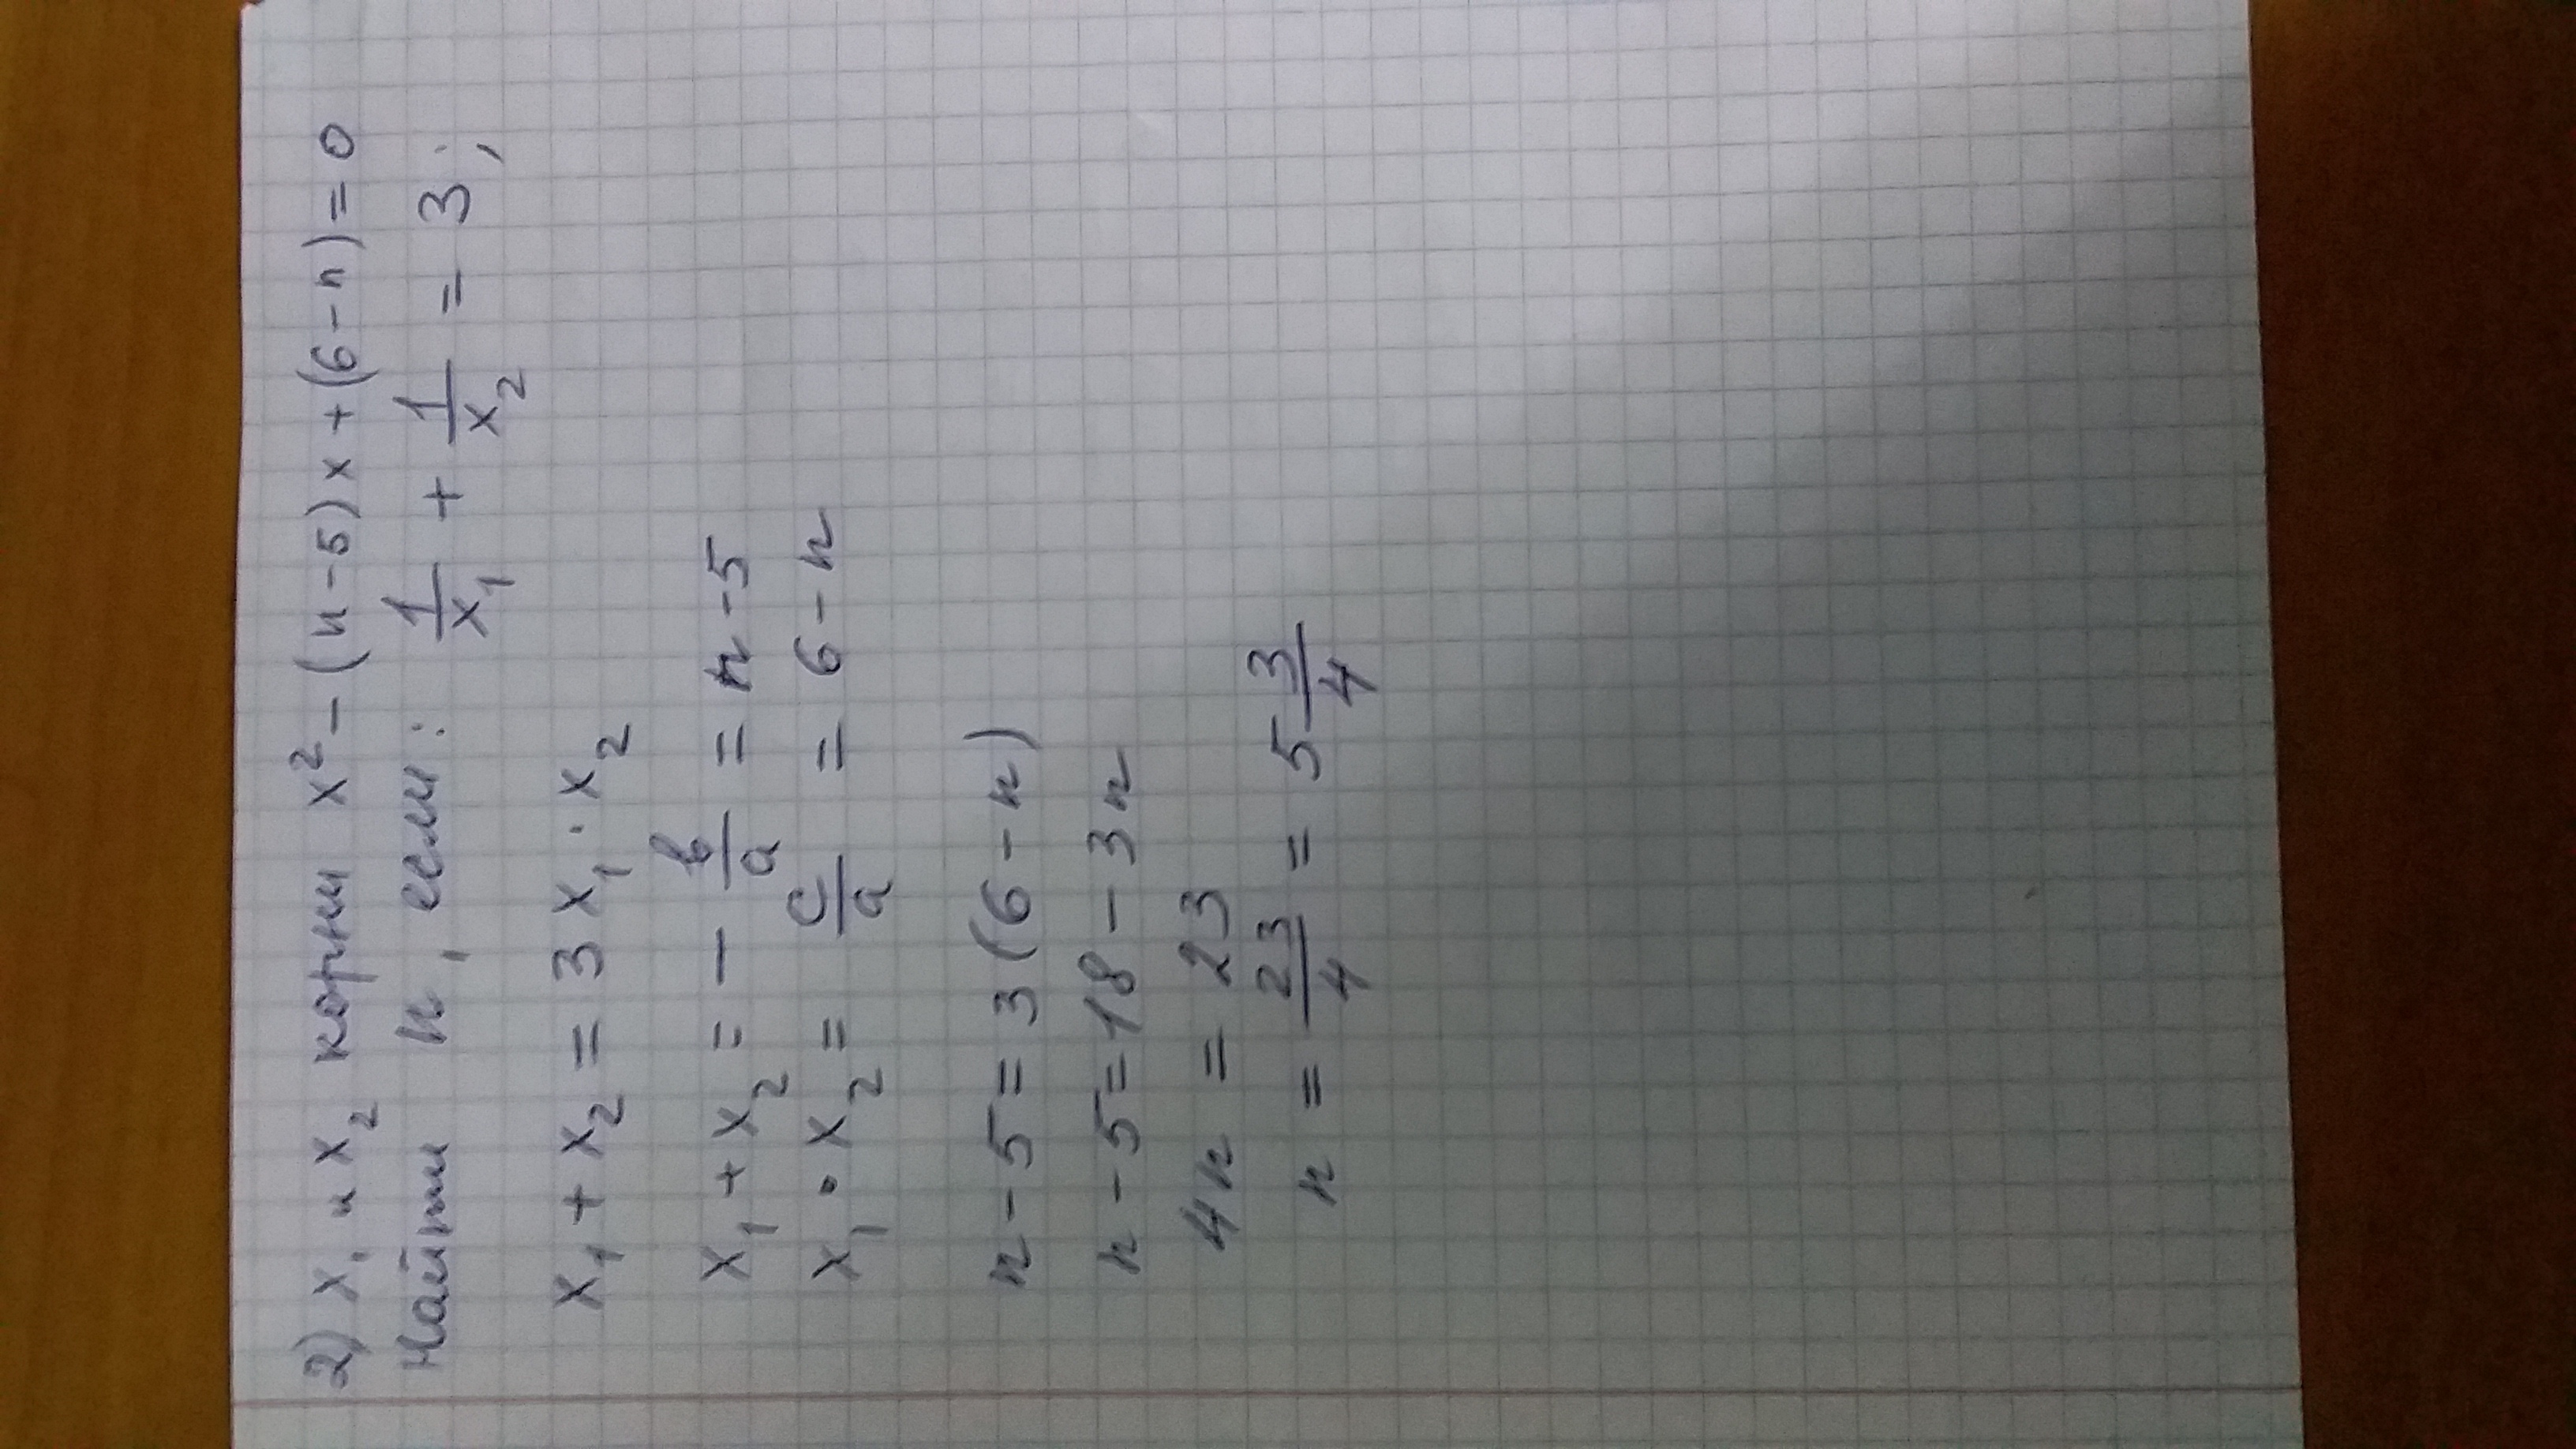 2) x₁ и x₂ корни x² - (n-5)x + (6-n) = 0
Найти n, если: 1/x₁ + 1/x₂ = 3;
x₁ + x₂ = 3x₁ · x₂
x₁ + x₂ = - b/a = n-5
x₁ · x₂ = c/a = 6-n
n-5 = 3(6-n)
n-5 = 18-3n
4n = 23
n = 23/4 = 5 3/4